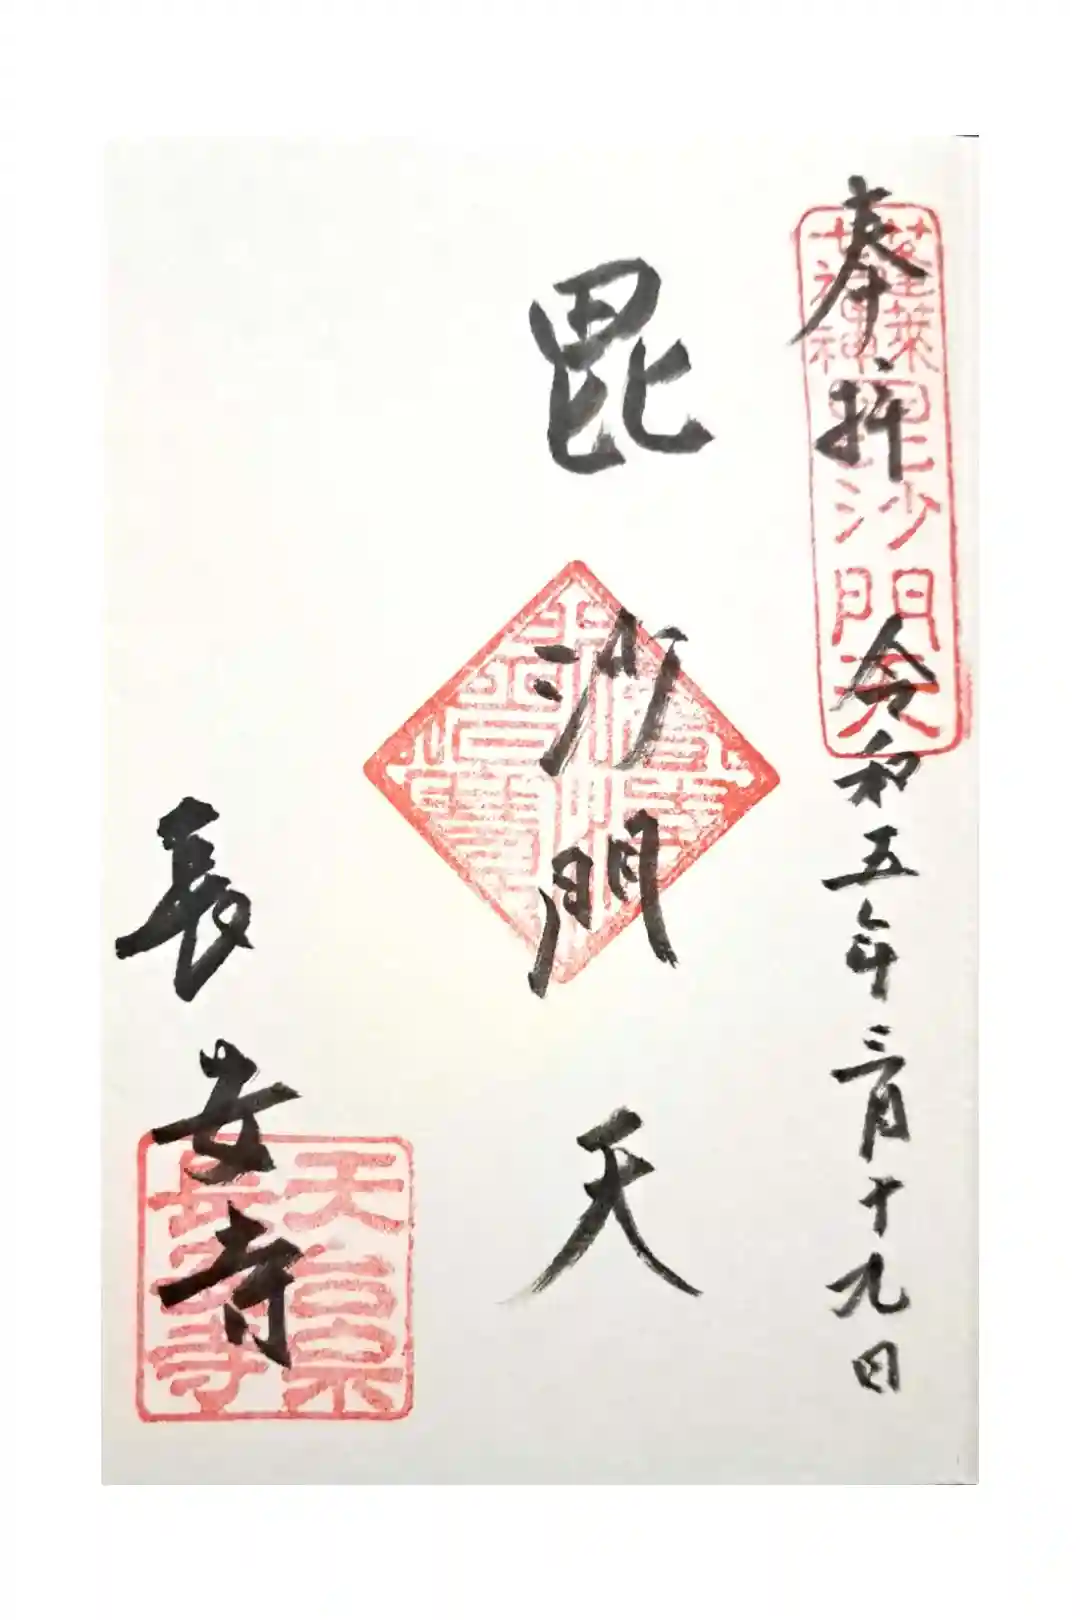 奉拝
令和五年三月十九日
蓬莱
七福神
毘沙門天
毘沙門天
長安寺
天台宗
長安寺